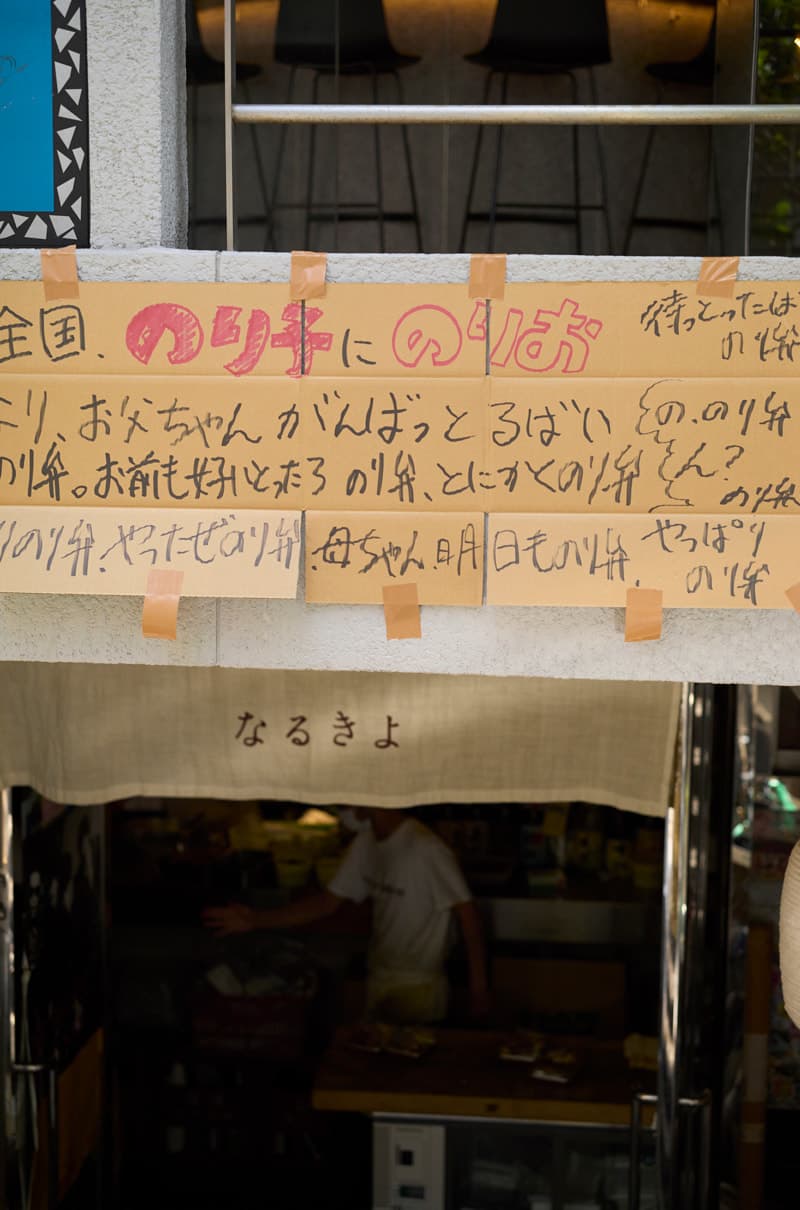 全国、のり子にのりお
待っとったばい
のり弁
より、お父ちゃんがんばっとるばい
の、のり弁
のり弁。お前も好いとったろのり弁、とにかくのり弁
ん?
のり弁
のり弁、やったぜのり弁、母ちゃん、明日ものり弁、
やっぱり
のり弁
なるきよ